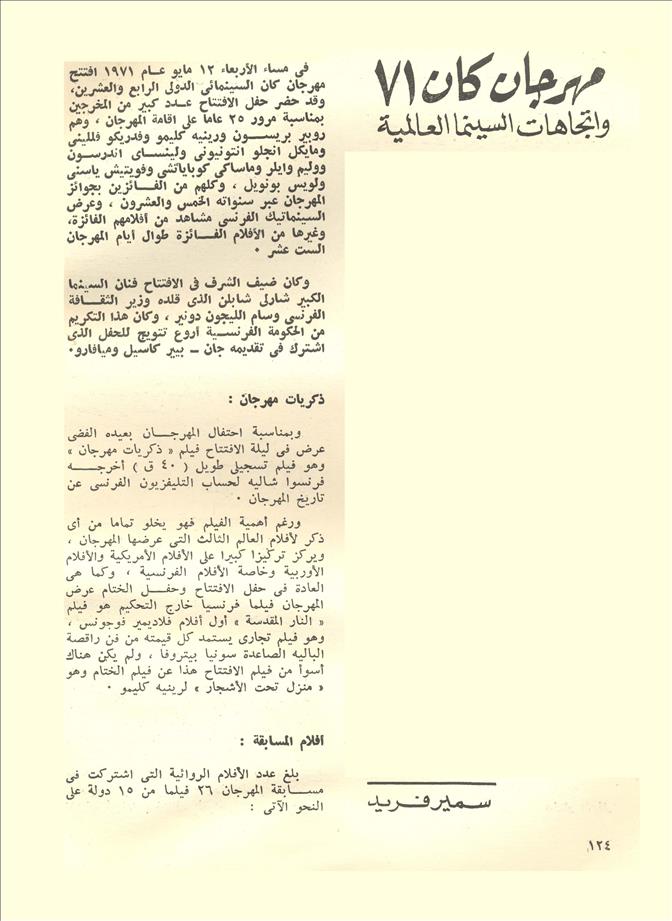 مهرجان كان ٧١
واتجاهات السينما العالمية
فى مساء الأربعاء ١٢ مايو عـام ١٩٧١ افتتح
مهرجان كان السينمائى الدولى الرابع والعشرين،
وقد حضر حفل الافتتاح عـدد كبير من المخرجين
بمناسبة مرور ٢٥ عاما على اقامة المهرجان ، وهم
روبير بريســون ورينيه كليمو وفدريكو فللينى
ومايكل انجلو انتونيونى ولينسـاى اندرسون
ووليم وايلر وماساكى كوباياتشى وفويتيش ياسنى
ولويس بونويل ، وكلهم من الفـائزين بجوائز
المهرجان عبر سنواته الخمس والعشرون ، وعرض
السينماتيك الفرنسى مشاهد من أفلامهم الفائزة،
وغيرها من الأفلام الفـائزة طوال أيام المهرجان
الست عشر ٠
وكان ضيف الشرف فى الافتتاح فنان السينما
الكبير شارلى شابلن الذى قلده وزير الثقـافة
الفرنسى وسام الليجون دونير ، وكان هذا التكريم
من الحكومة الفرنسـية أروع تتويج للحفل الذى
اشترك فى تقديمه جان ــ بيير كاسيل وميافارو٠
ذكريات مهرجان :
وبمناسبة احتفال المهرجـــان بعيده الفضى
عرض فى ليلة الافتتاح فيلم « ذكريات مهرجان »
وهو فيلم تسجيلى طويل ( ٤٠ ق ) أخرجـــه
فرنسوا شاليه لحساب التليفزيون الفرنسى عن
تاريخ المهرجان ٠
ورغم أهمية الفيلم فهو يخلو تماما من أى
ذكر لأفلام العالم الثالث التى عرضها المهرجان ،
ويركز تركيزا كبيرا على الأفلام الأمريكية والأفلام
الأوربية وخاصة الأفلام الفرنسية ، وكما هى
العادة فى حفل الافتتاح وحفــل الختام عرض
المهرجان فيلما فرنسيا خارج التحكيم هو فيلم
« النار المقدسة » أول أفلام فلاديمير فوجونس ،
وهو فيلم تجارى يستمد كل قيمته من فن راقصة
الباليه الصاعدة سونيا بيتروفا ، ولم يكن هناك
أسوأ من فيلم الافتتاح هذا عن فيلم الختام وهو
« منزل تحت الأشجار » لرينيه كليمو ٠
أفلام المسابقة :
بلغ عدد الأفلام الروائية التى اشتركت فى
مســابقة المهرجان ٢٦ فيلما من ١٥ دولة على
النحو الآتى :
سمير فريد
١٢٤